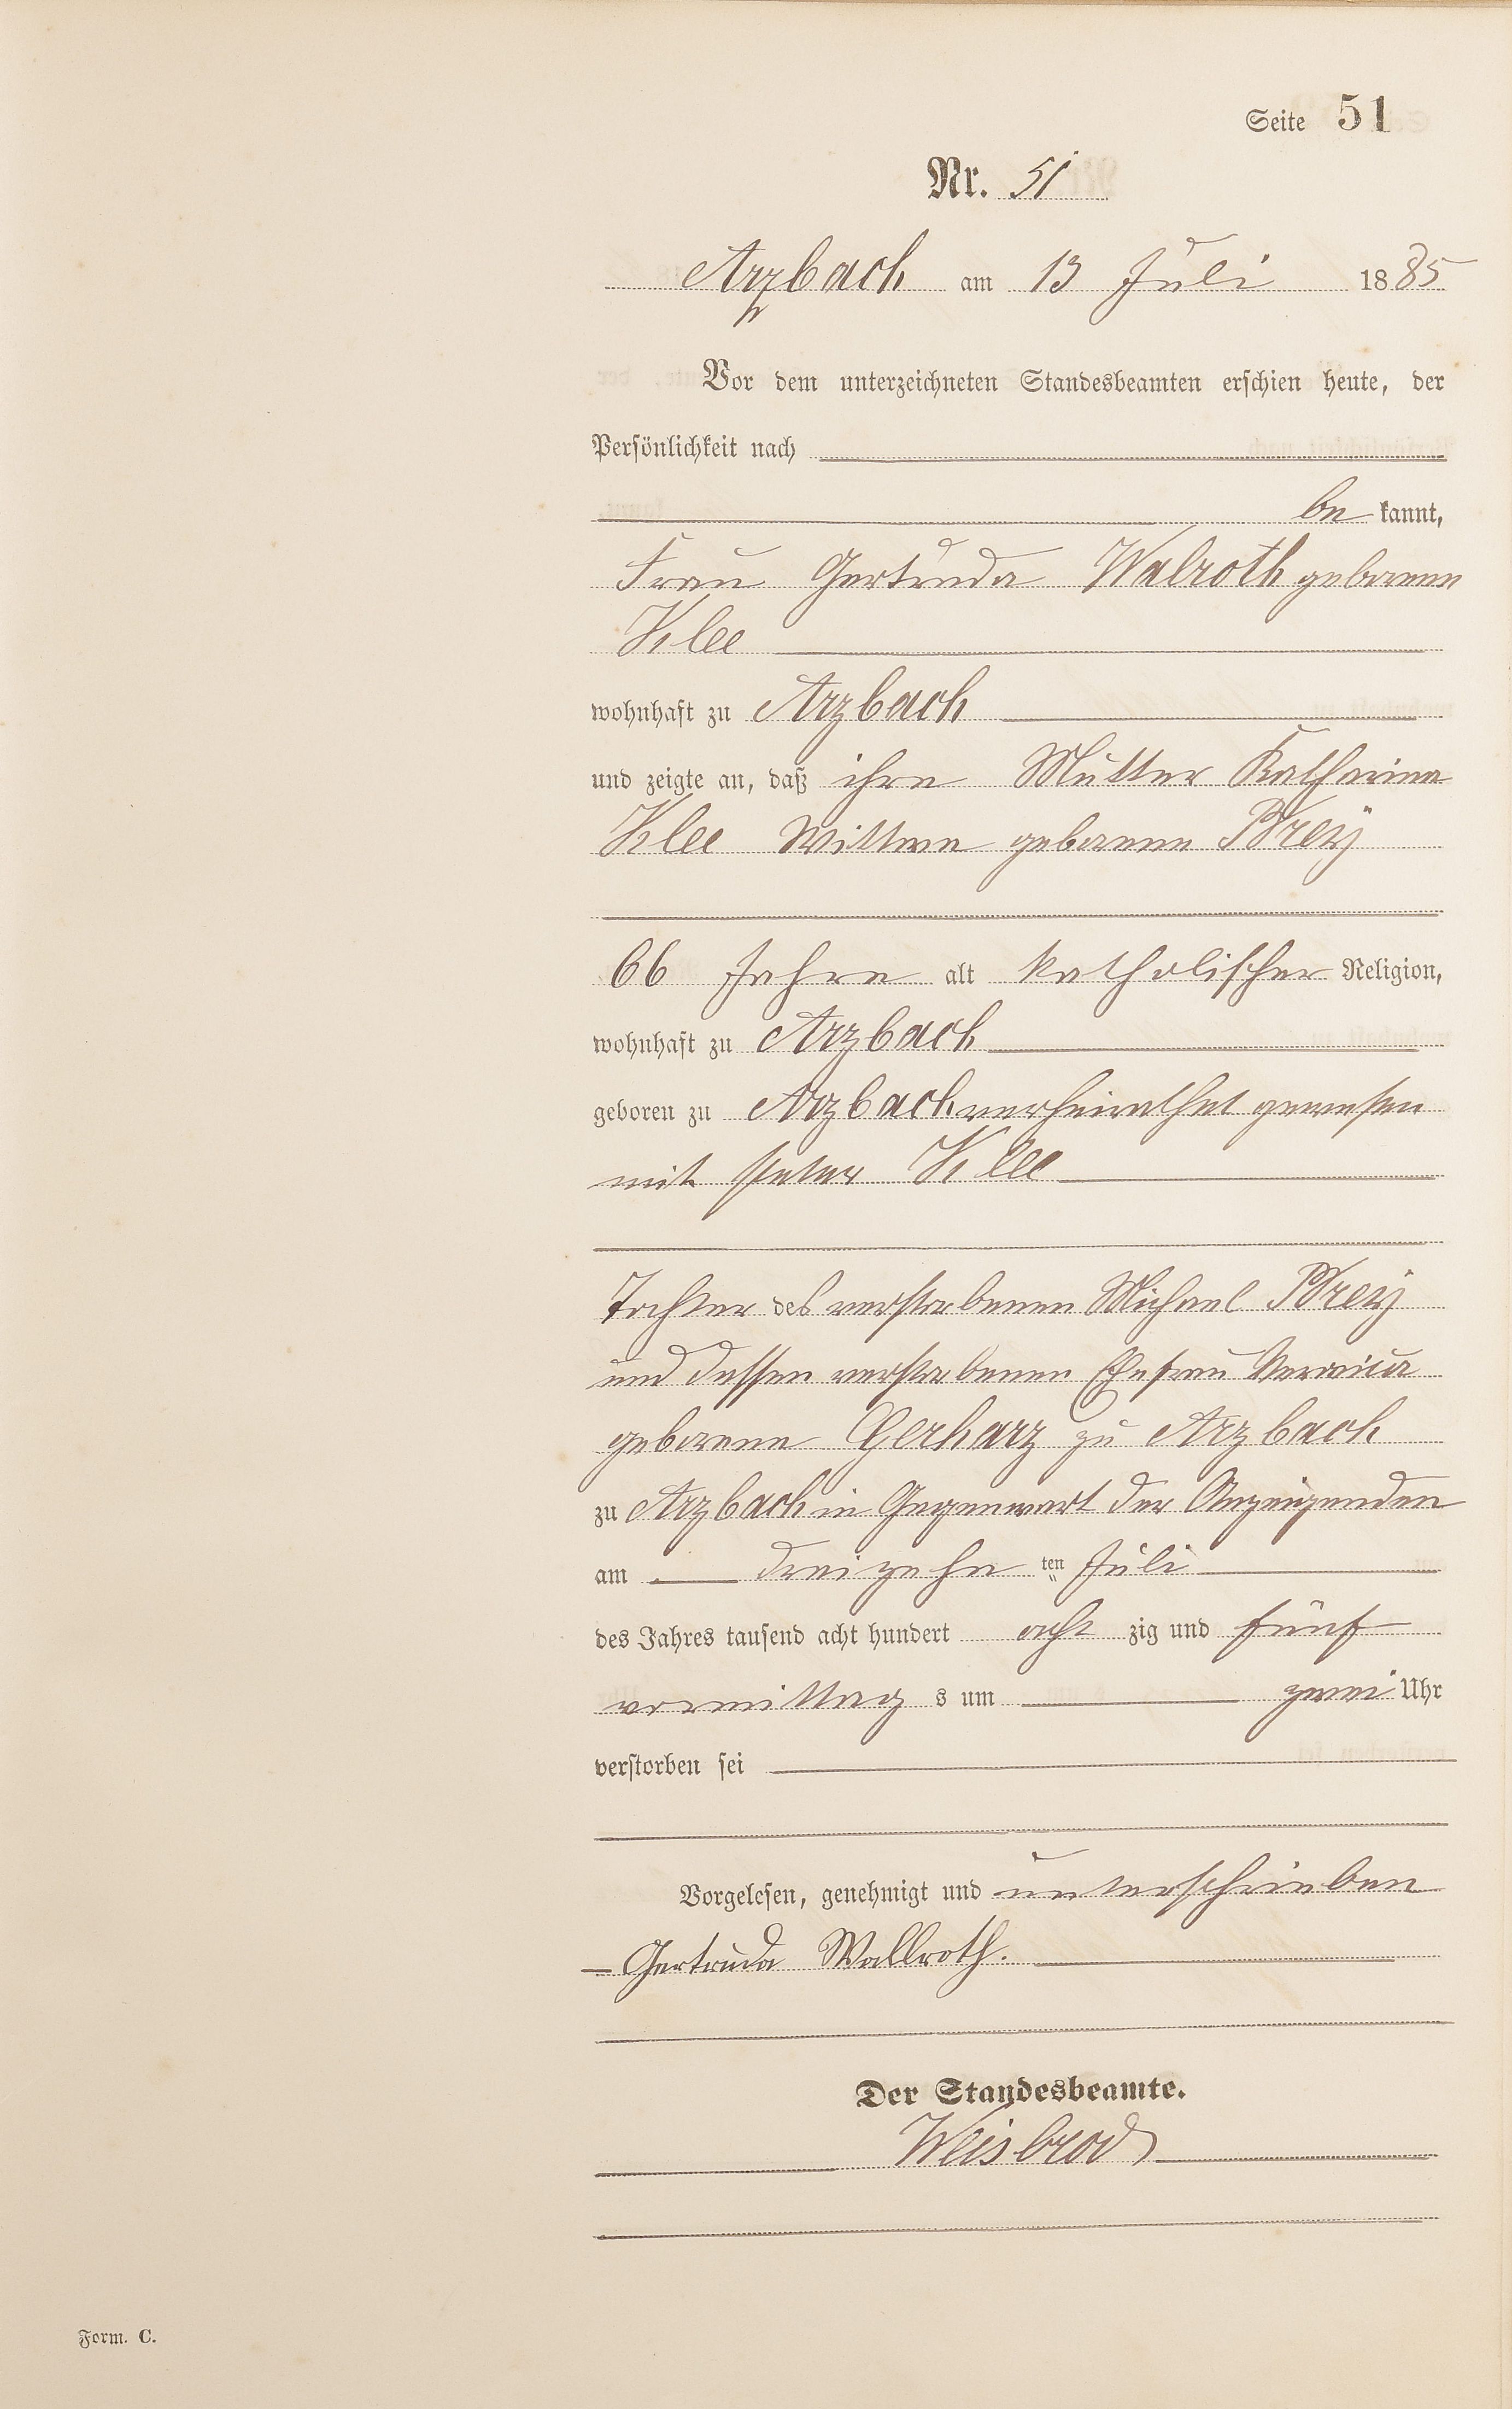 Seite 51
Nr. 51
Arzbach am 13 Juli 1885
Vor dem unterzeichneten Standesbeamten erschien heute, der
Persönlichkeit nach
be kannt,
Frau Gertruda Walroth geborene
Klee
wohnhaft zu Arzbach
und zeigte an, daß ihre Mutter Katharina
Klee Wittwe geborene
66 Jahre alt katholischer Religion,
wohnhaft zu Arzbach
geboren zu Arzbach verheirathet gewesen
mit Peter Klee
Tochter des verstorbenen Michael
und dessen verstorbenen Ehefrau
geborene Gerharz zu Arzbach
zu Arzbach in Gegenwart der Anzeigenden
am dreizehn ten Juli
des Jahres tausend acht hundert acht zig und fünf
vormittag s um zwei Uhr
verstorben sei
Vorgelesen, genehmigt und unterschrieben
Gertruda Wallroth.
Der Standesbeamte.
Weisbrod
Form. C.